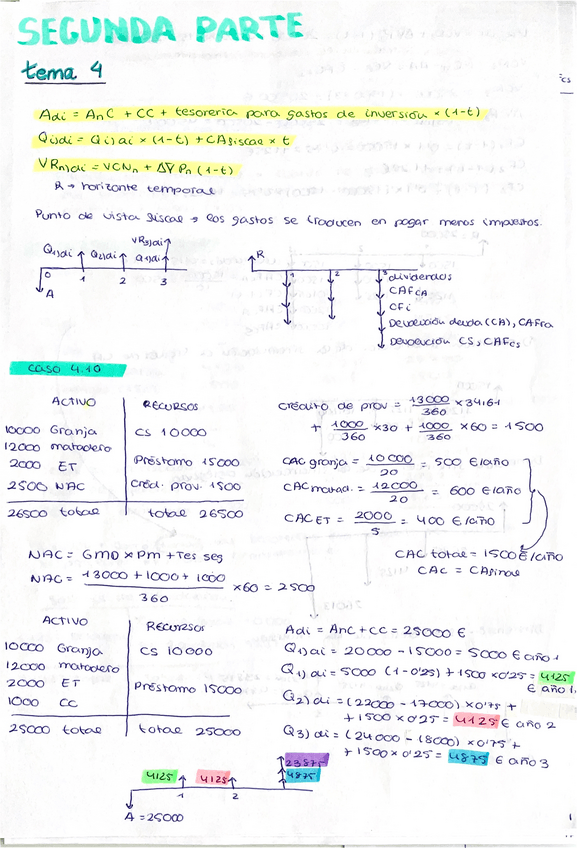 SEGUNDA PARTE
tema 4
Adi = AnC + CC + tesorería para gastos de inversión × (1-t)
Qi)di = Qi)ai × (1-t) + CAfiscal × t
VRn)di = VCNn + Δ∇Pn (1-t)
R → horizonte temporal
Punto de vista fiscal → los gastos se traducen en pagar menos impuestos.
VR3)di
Q1)di Q2)di Q3)di
0 1 2 3
A
R
1 2 3
dividendos
CAFCA
CFi
Devolución deuda (CA), CAFra
Devolución CS, CAFCS
caso 4.10
ACTIVO RECURSOS
10000 Granja CS 10000
12000 matadero
2000 ET Préstamo 15000
2500 NAC Créd. prov. 1500
26500 total total 26500
crédito de prov = 13000/360 × 34,61
+ 1000/360 × 30 + 1000/360 × 60 = 1500
CAC granja = 10000/20 = 500 €/año
CAC matad. = 12000/20 = 600 €/año
CAC ET = 2000/5 = 400 €/año
CAC total = 1500 €/año
CAC = CAfiscal
NAC = GMD × Pm + Tes seg
NAC = 13000 + 1000 + 1000/360 × 60 = 2500
ACTIVO RECURSOS
10000 Granja CS 10000
12000 matadero
2000 ET Préstamo 15000
1000 CC
25000 total total 25000
Adi = AnC + CC = 25000 €
Q1) ai = 20000 - 15000 = 5000 € año 1
Q1) di = 5000 (1-0'25) + 1500 × 0'25 = 4125
€ año 1.
Q2) di = (22000 - 17000) × 0'75 +
+ 1500 × 0'25 = 4125 € año 2
Q3) di = (24000 - 18000) × 0'75 +
+ 1500 × 0'25 = 4875 € año 3
23875
4125 4125 4875
1 2
A = 25000